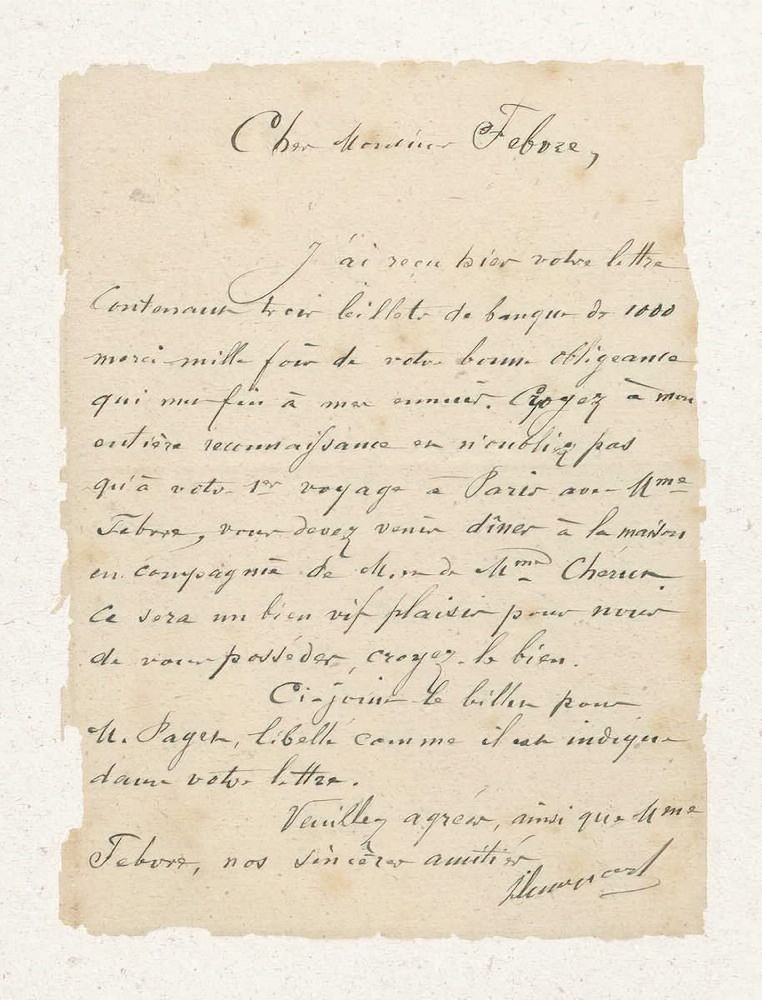 Cher Monsieur Febvre,
J'ai reçu hier votre lettre
Contenant trois billets de banque de 1000
merci mille fois de votre bonne obligeance
qui met fin à mes ennuis. Croyez à mon
entière reconnaissance et n'oubliez pas
qu'à votre 1er voyage à Paris avec Mme
Febvre, vous devez venir dîner à la maison
en compagnie de M. et de Mme
Ce sera un bien vif plaisir pour nous
de vous posséder, croyez-le bien.
Ci-joint le billet pour
M. Pager, libellé comme il est indiqué
dans votre lettre.
Veuillez agréer, ainsi que Mme
Febvre, nos sincères amitiés